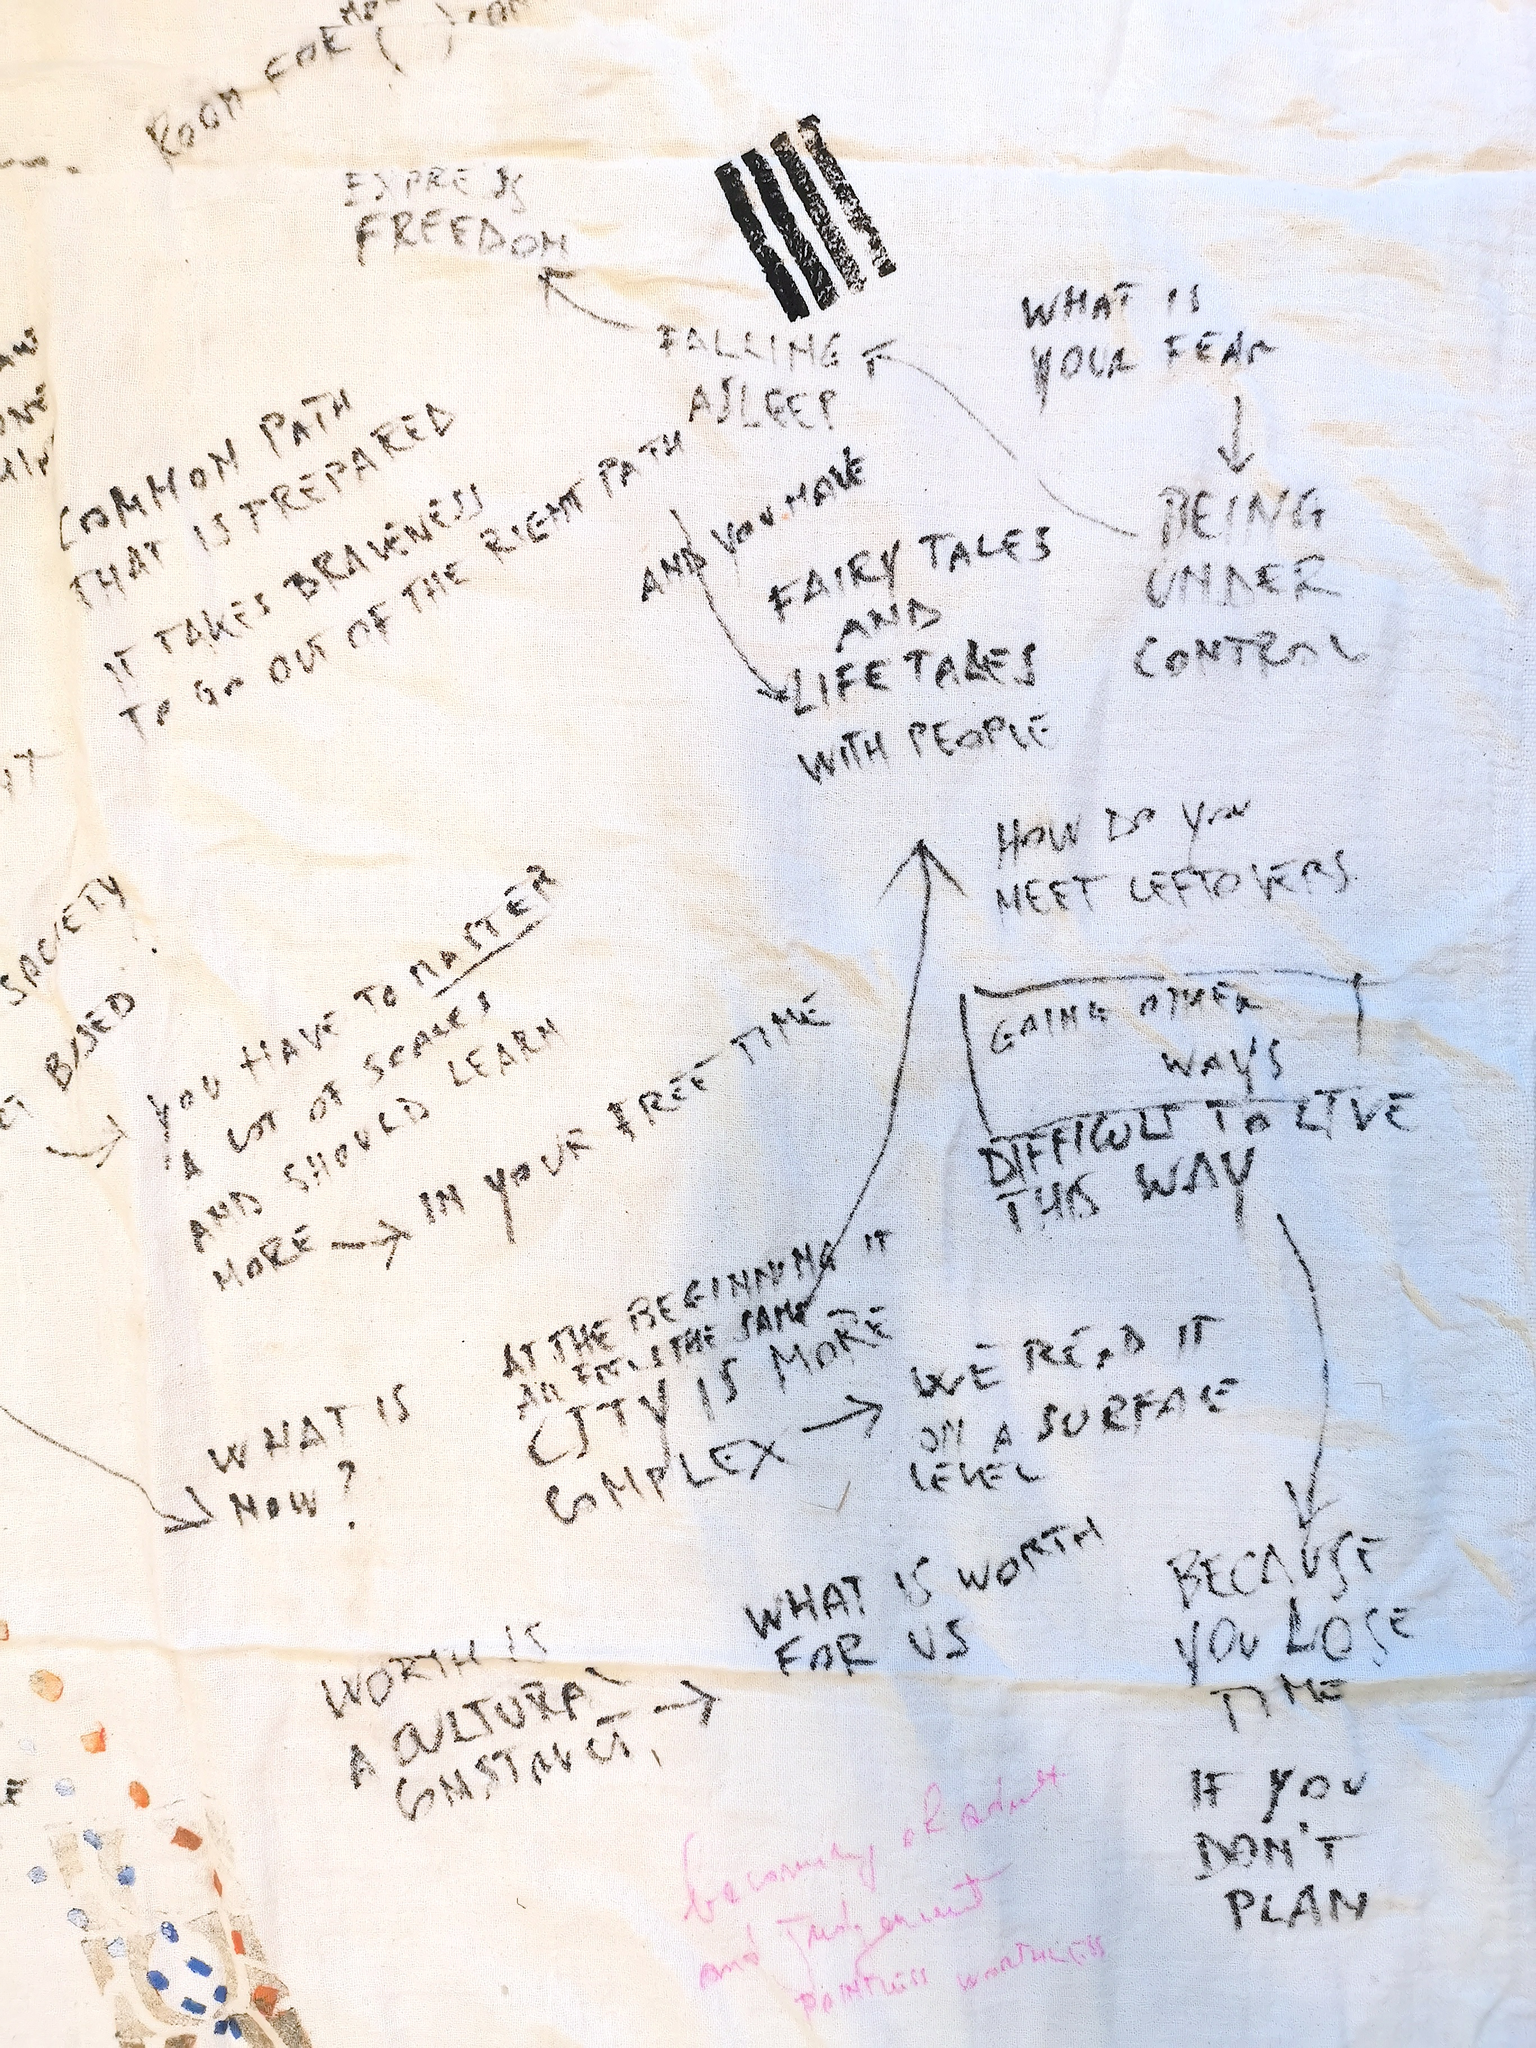 ROOM FOR
EXPRESS
FREEDOM
FALLING
ASLEEP
WHAT IS
YOUR FEAR
BEING
UNDER
CONTROL
COMMON PATH
THAT IS PREPARED
IT TAKES BRAVENESS
TO GO OUT OF THE RIGHT PATH
AND YOU HAVE
FAIRY TALES
AND
LIFE TALES
WITH PEOPLE
HOW DO YOU
MEET LEFTOVERS
GOING OTHER
WAYS
DIFFICULT TO LIVE
THIS WAY
SOCIETY
BASED
YOU HAVE TO MASTER
A LOT OF SCALES
AND SHOULD LEARN
MORE → IN YOUR FREE TIME
AT THE BEGINNING IT
THE SAME
CITY IS MORE
COMPLEX → WE READ IT
ON A SURFACE
LEVEL
WHAT IS
NOW?
BECAUSE
YOU LOSE
TIME
IF YOU
DON'T
PLAN
WORTH IS
A CULTURAL
CONSTRUCT →
WHAT IS WORTH
FOR US
becoming adult
and Judgement
POINTLESS WORTHLESS